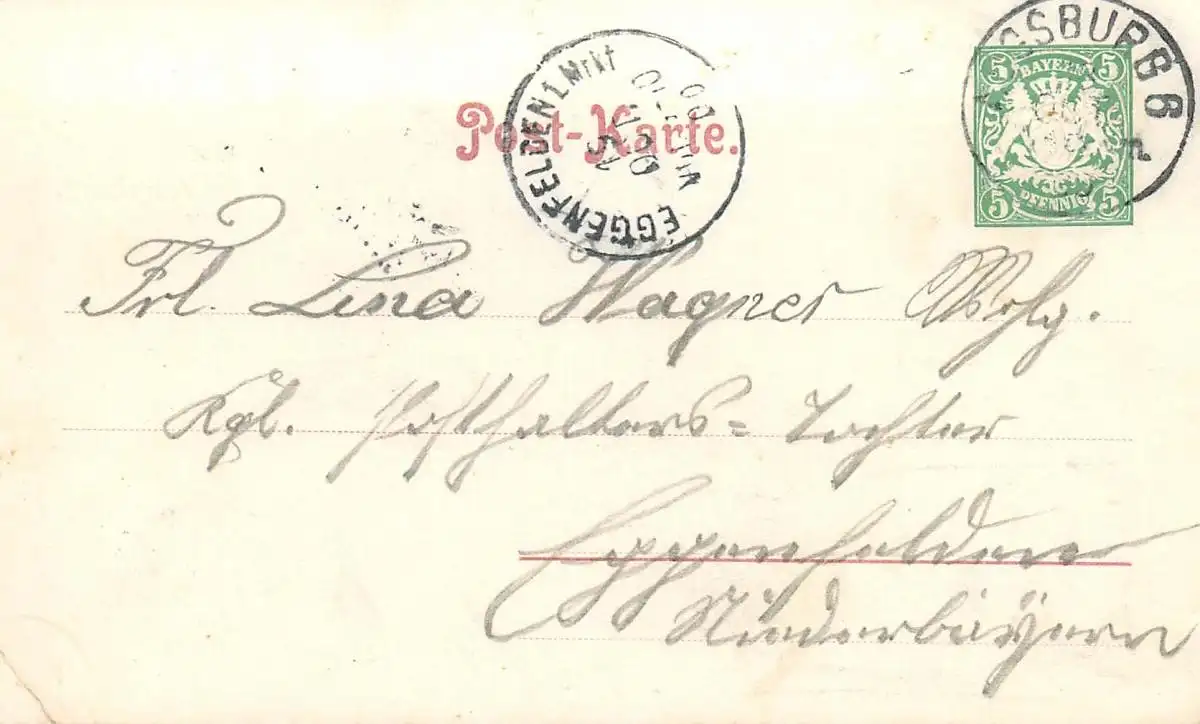 Post-Karte.
AUGSBURG 6
BAYERN
5 5
5 5
PFENNIG
EGGENFELDEN 1. Mrkt
Frl. Lina Wagner Wohlg.
Kgl. Posthalters-Tochter
Eggenfelden
Niederbayern